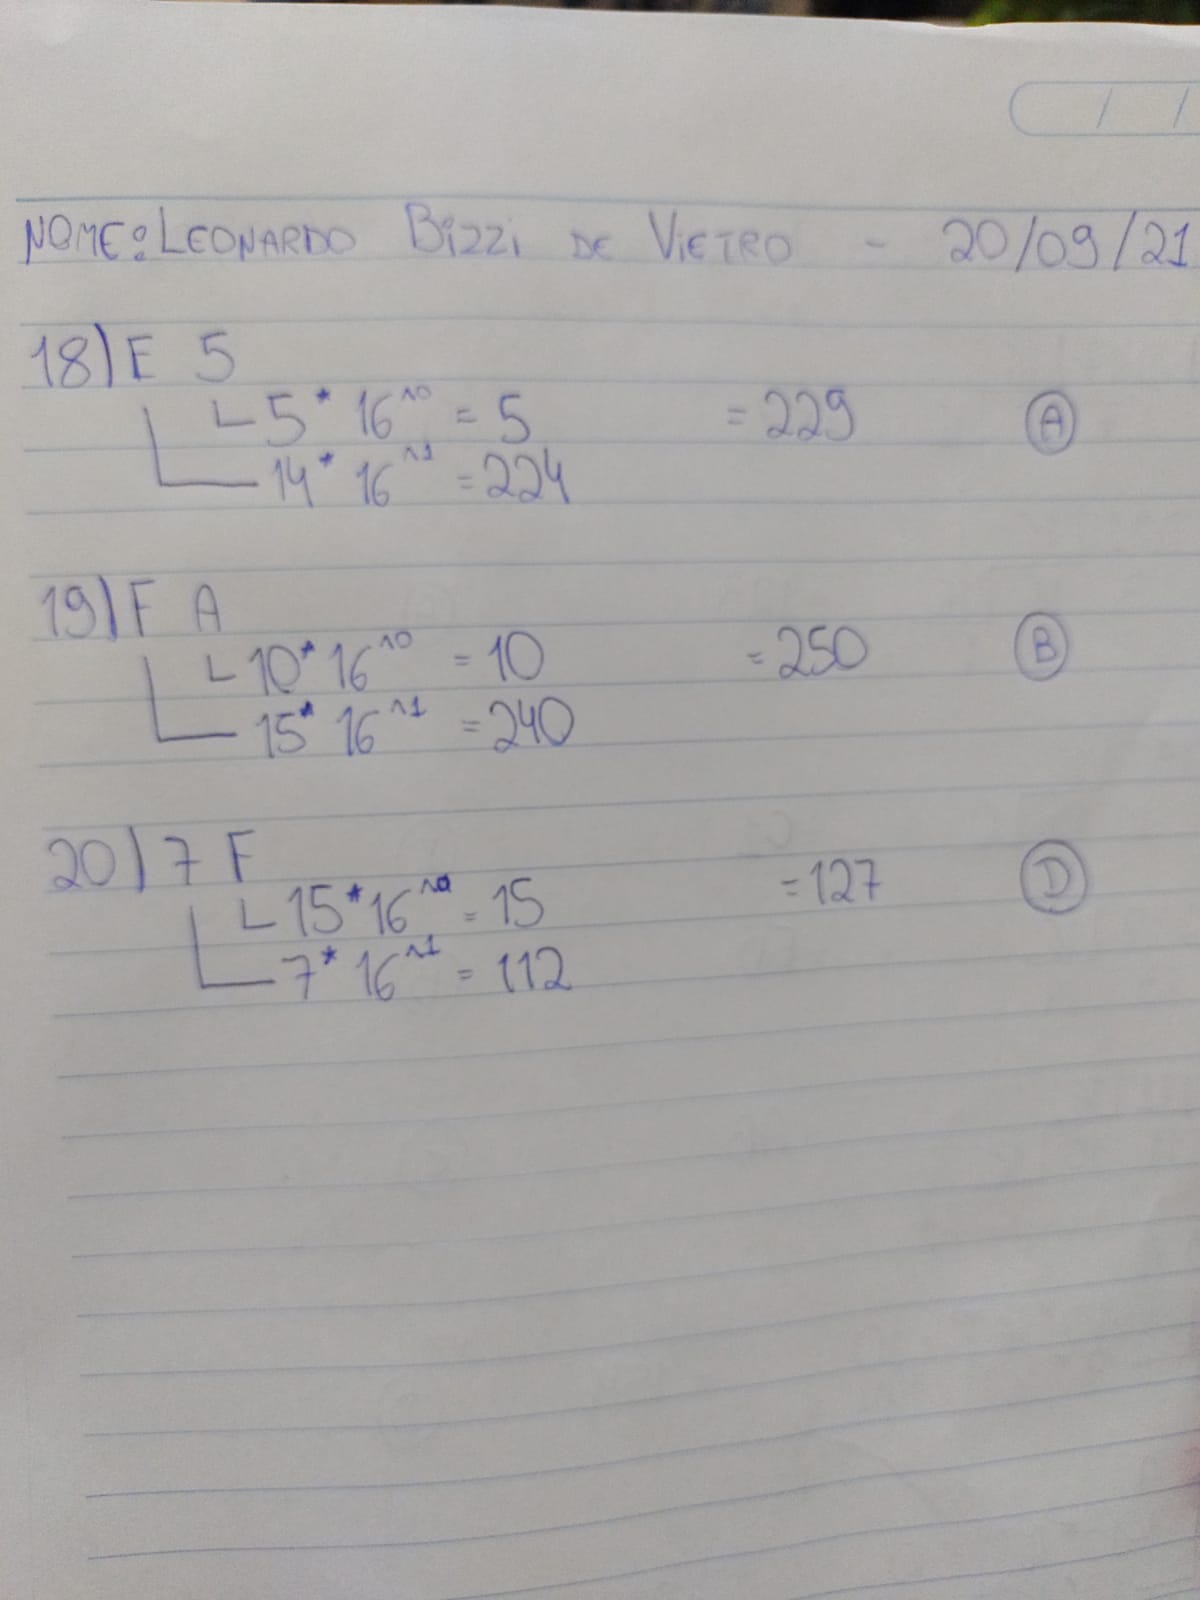 / /
NOME: LEONARDO BIZZI DE VIETRO - 20/09/21
18) E 5
5 * 16^0 = 5 = 229 A
14 * 16^1 = 224
19) F A
10 * 16^0 = 10 = 250 B
15 * 16^1 = 240
20) 7 F
15 * 16^0 = 15 = 127 D
7 * 16^1 = 112